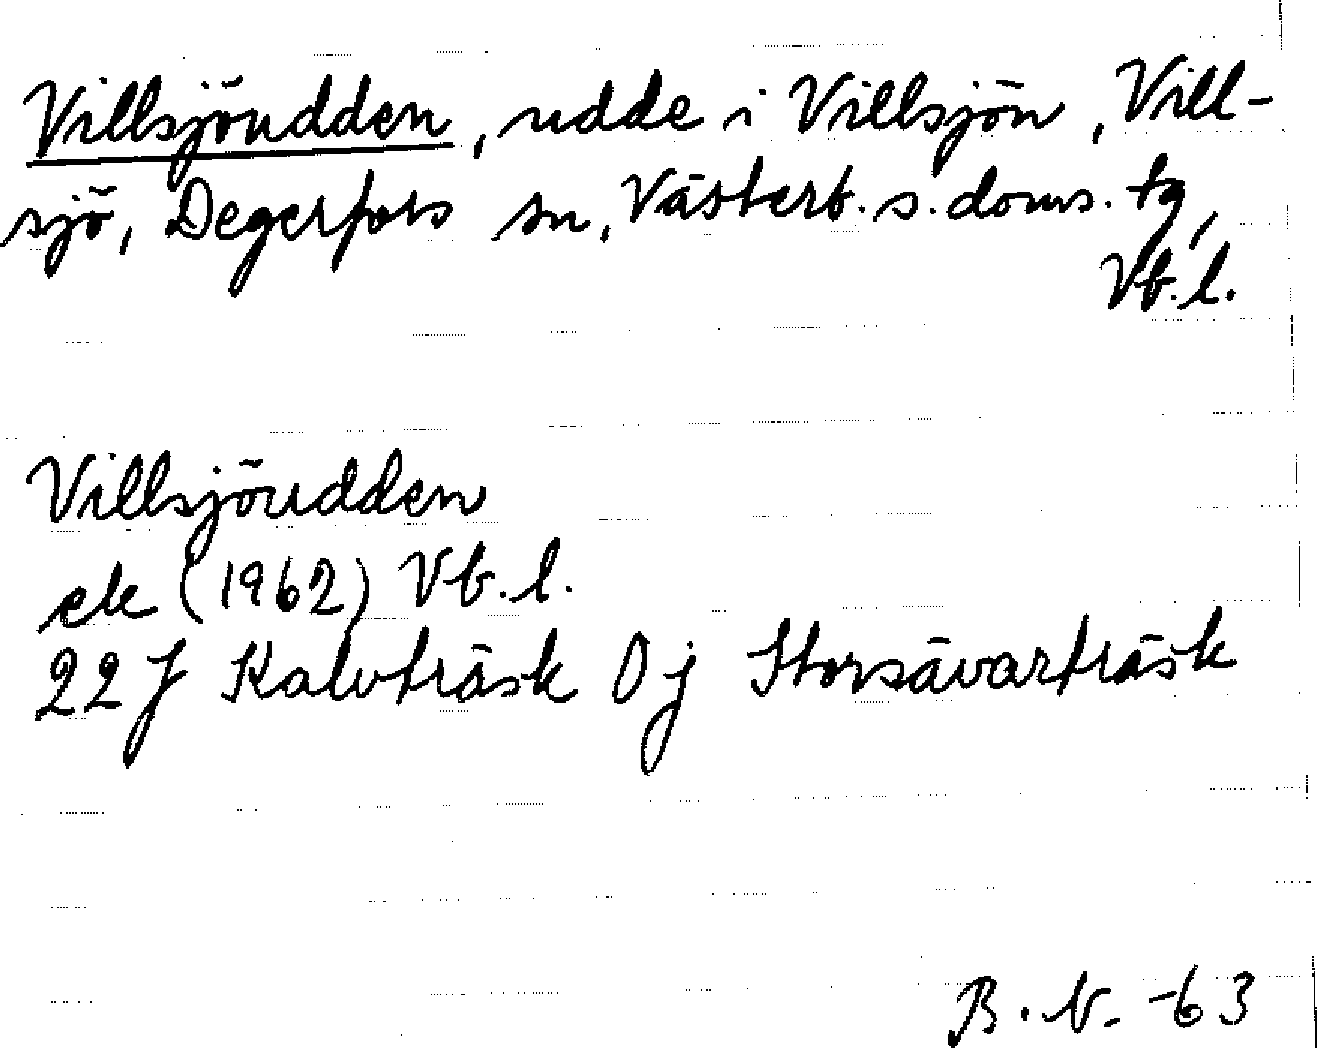 Villsjöudden, udde i Villsjön, Vill-
sjö, Degerfors sn, Västerb. s. doms. tg,
Vb. l.
Villsjöudden
ek (1962) Vb. l.
22 J Kalvträsk 0 j Storsävarträsk
B. N. -63